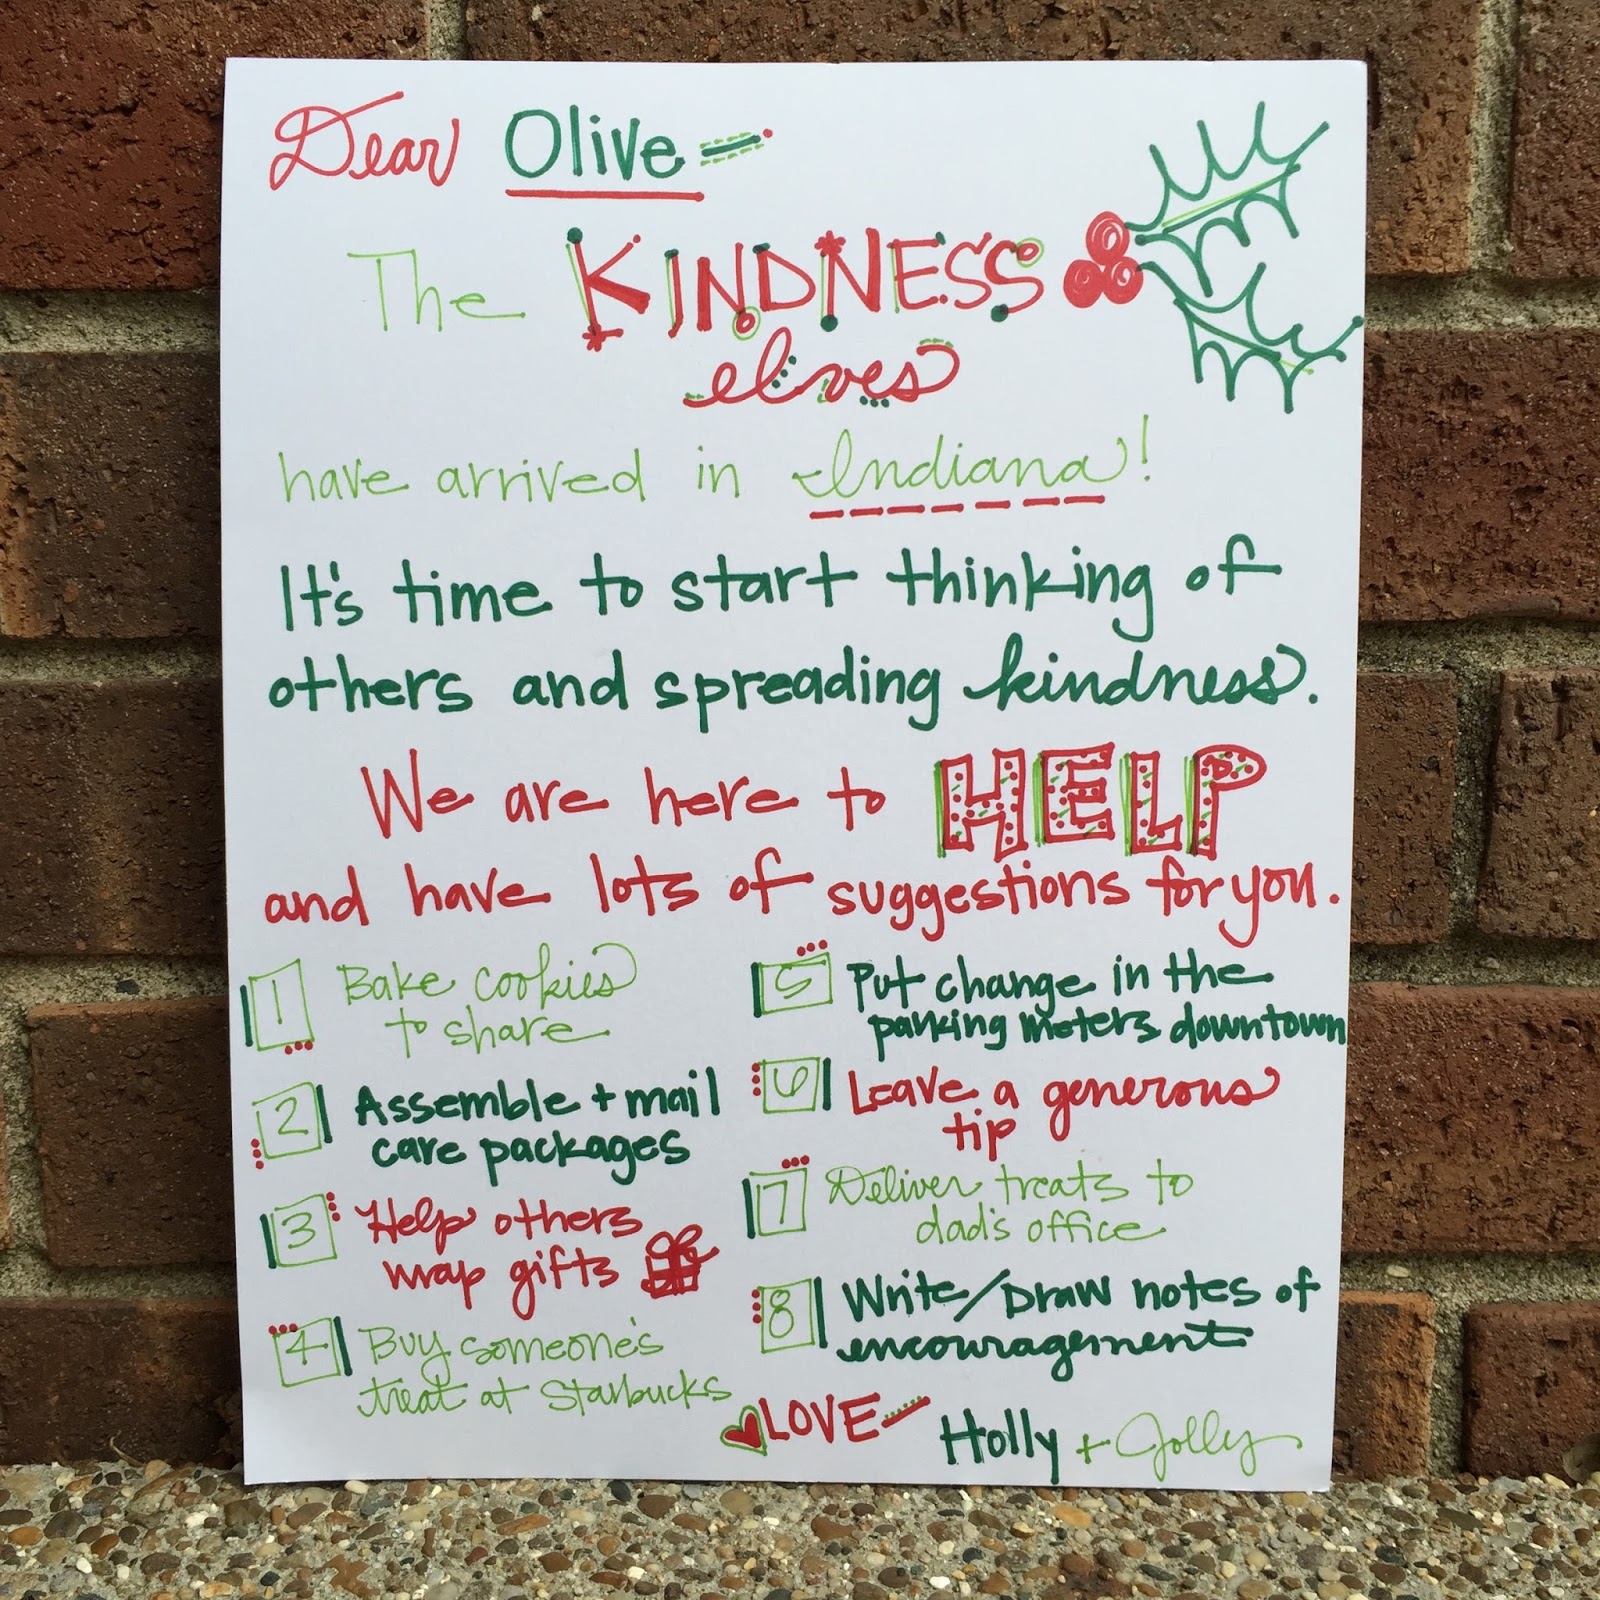 Dear Olive -
The KINDNESS
elves
have arrived in Indiana!
It's time to start thinking of
others and spreading kindness.
We are here to HELP
and have lots of suggestions for you.
1 Bake cookies
to share
2 Assemble + mail
care packages
3 Help others
wrap gifts
4 Buy someone's
treat at Starbucks
5 Put change in the
parking meters downtown
6 Leave a generous
tip
7 Deliver treats to
dad's office
8 Write/Draw notes of
encouragement
LOVE - Holly + Jolly